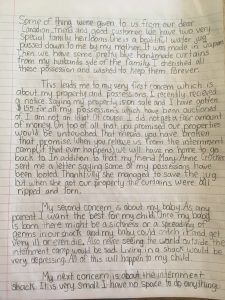 Some of thing were given to us from our dear
Canadian friend and good customer. we have two very
special family heirlooms. Usness a beautiful water jug
passed down to me by my mother. It was made in Japan
then we have some pretty blue handmade curtains
from my husbands side of the family. I cherished all
these possession and wished to keep them forever.
This leads me to my very first concern which is
about my property and possessions. I recently received
a notice saying my property is on sale and I have gotten
$ for all my possessions which have been auctioned
of. I am not an idiot of course I did not get a fair amount
of money. On top of all that you promised our properties
would be untouched. That means you have broken
that promise when you release us from the internment
camp (if that ever happens) we will have no home to go
back to. In addition to that my friend Mary-Anne Crowther
sent me a letter saying some of my possessions have
been looted. Thankfully she managed to save the jug
but when she got our property the curtains were all
ripped and torn.
My second concern is about my baby. As any
parent I want the best for my child. Once my baby
is born there might be a sickness or a spreading of
germs in our shack and my baby could catch it and get
very ill or even die. Also never seeing the world outside the
internment camp would be sad. Living in a shack would be
very depressing. All of this will happen to my child.
My next concern is about the internment
shack. It is very small I have no space to do anything.